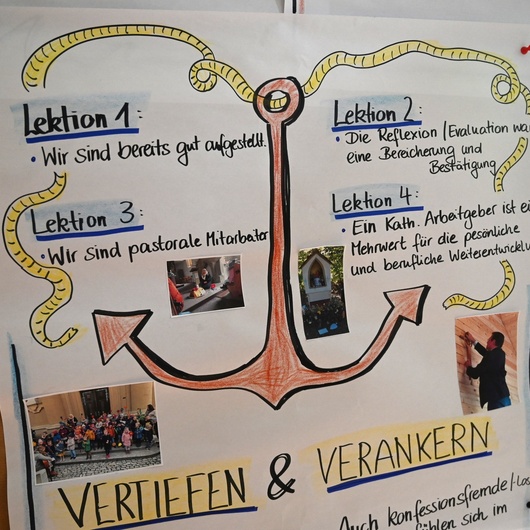 Lektion 1:
• Wir sind bereits gut aufgestellt.
Lektion 2:
• Die Reflexion / Evaluation wa
eine Bereicherung und
Bestätigung
Lektion 3:
• Wir sind pastorale Mitarbeiter
Lektion 4:
• Ein Kath. Arbeitgeber ist ei
Mehrwert für die pesönliche
und berufliche Weiterentwicklu
VERTIEFEN & VERANKERN
Auch konfessionsfremde/-los
fühlen sich im